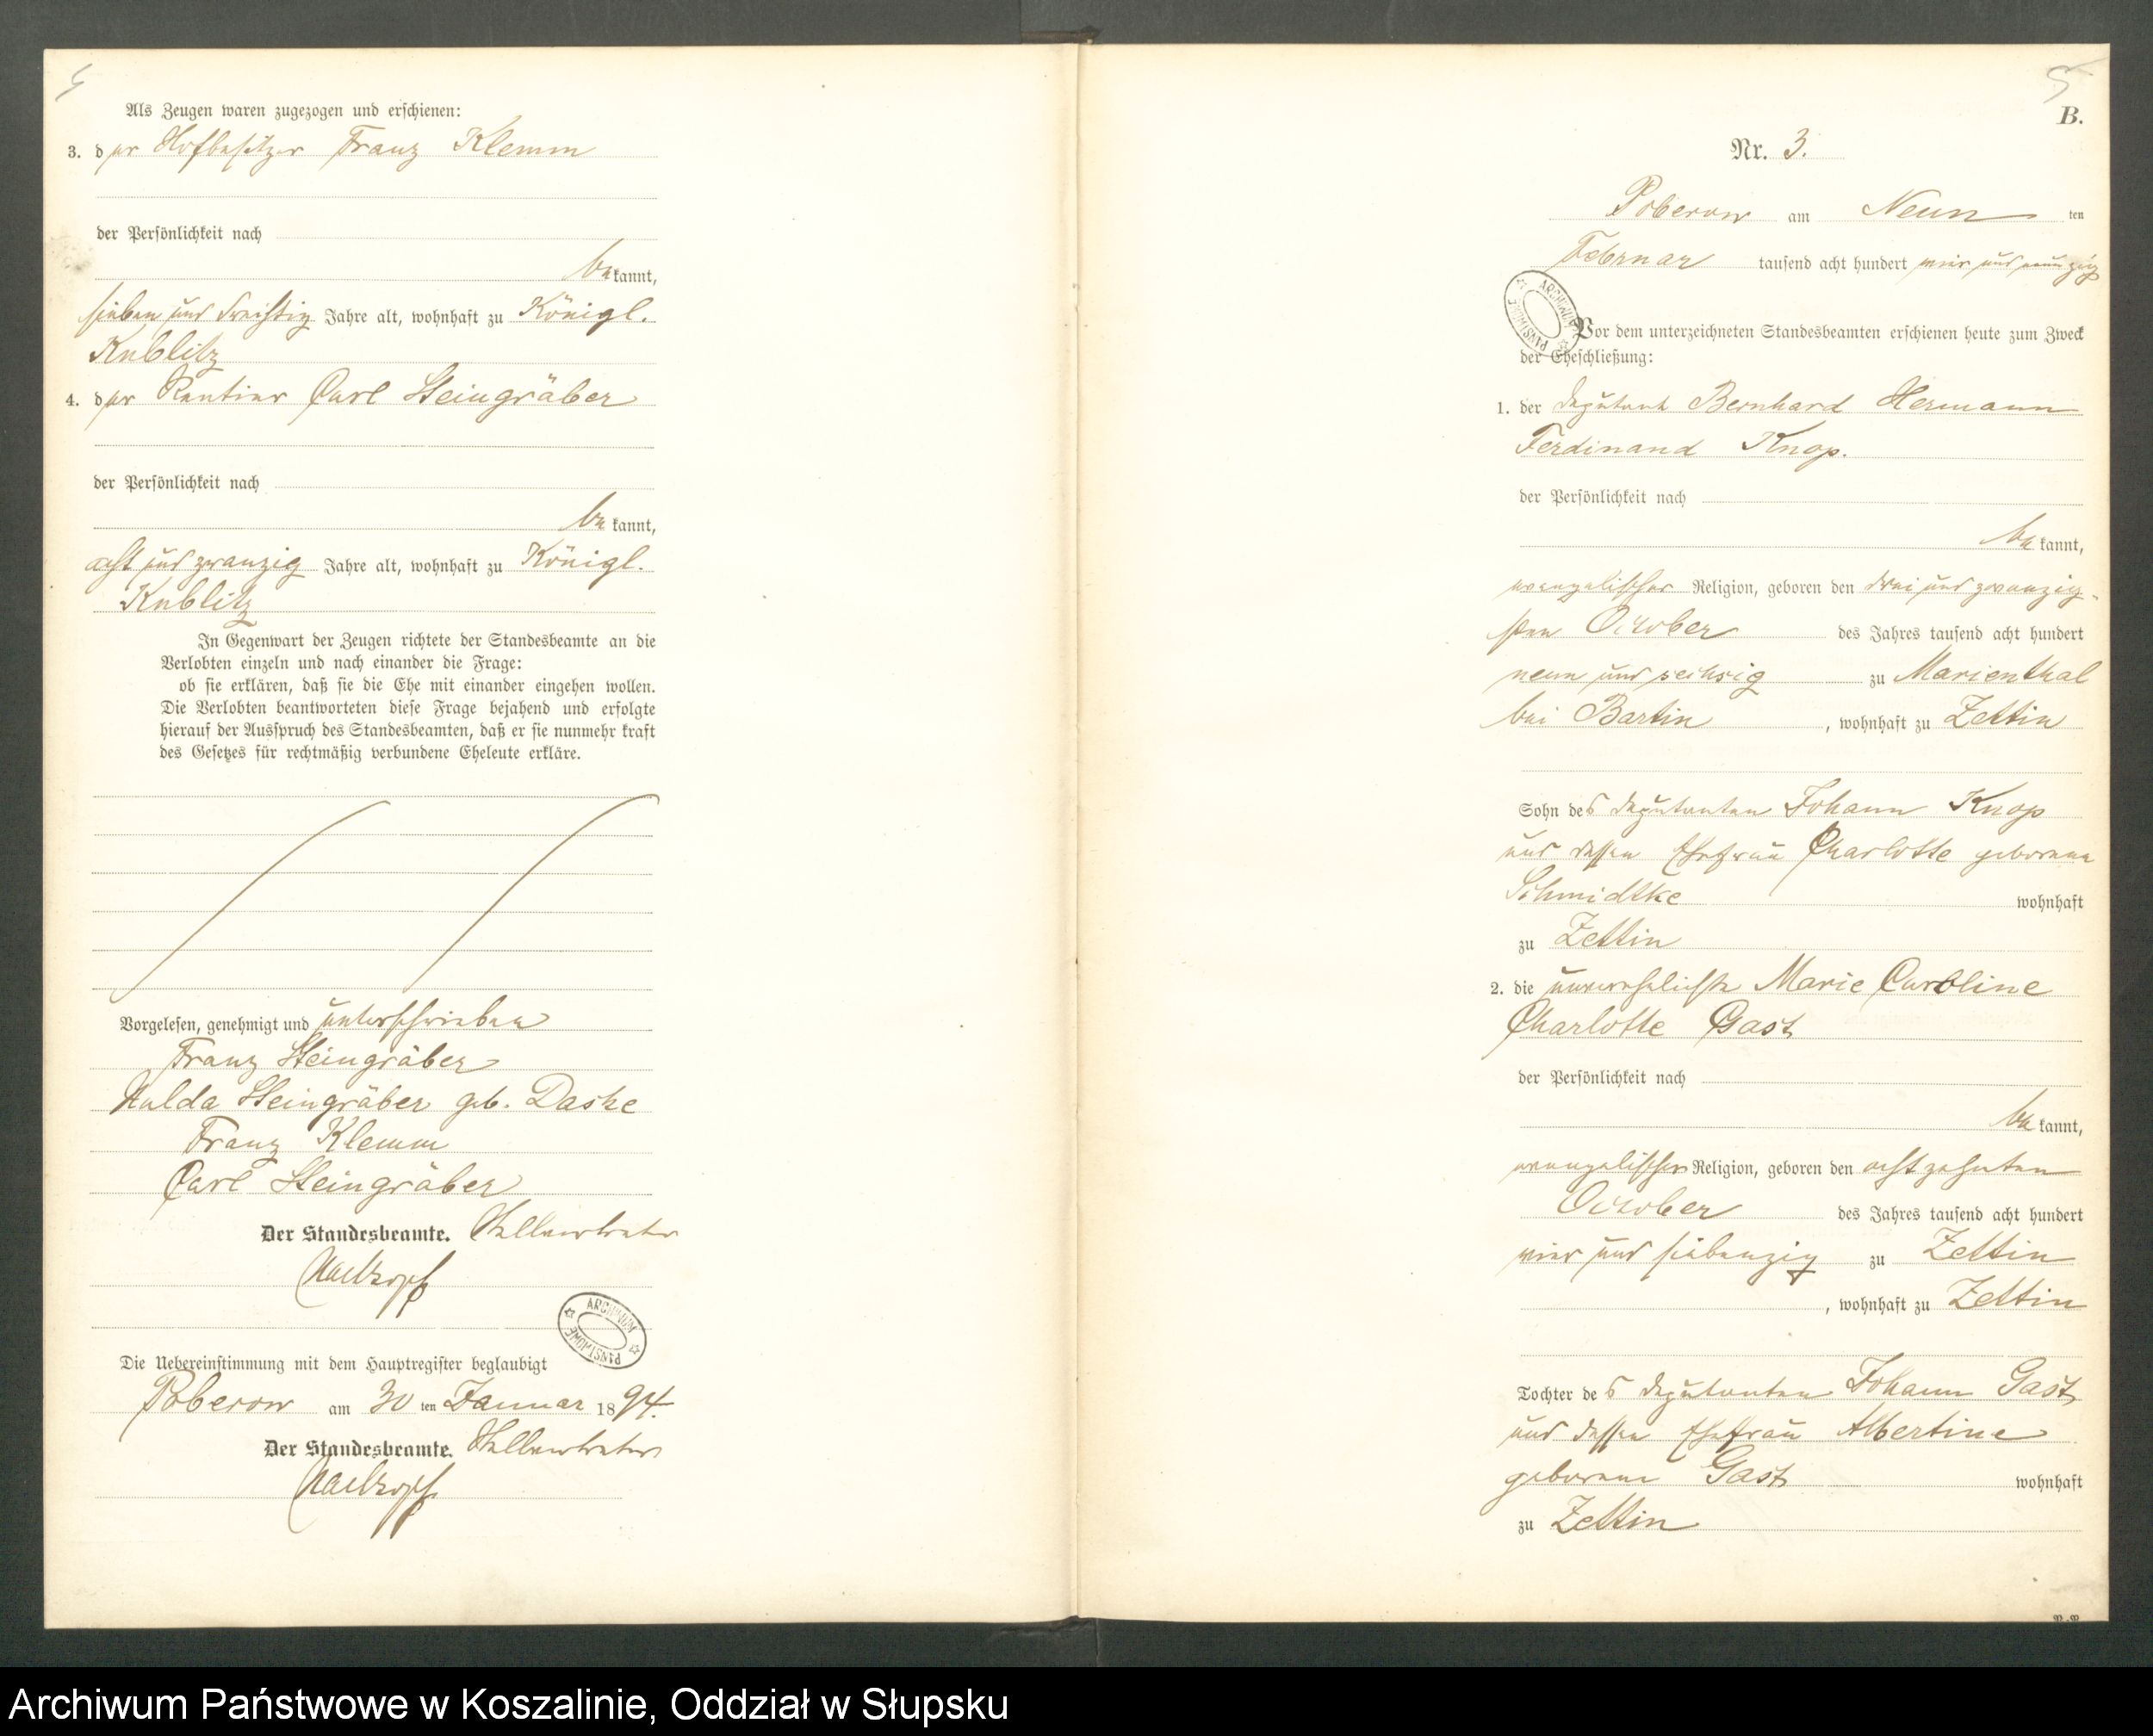 Als Zeugen waren zugezogen und erschienen:
3. der Hofbesitzer Franz Klemm
der Persönlichkeit nach
bekannt,
sieben und dreißig Jahre alt, wohnhaft zu Königl.
Kublitz
4. der Rentier Carl Steingräber
der Persönlichkeit nach
bekannt,
acht und zwanzig Jahre alt, wohnhaft zu Königl.
Kublitz
In Gegenwart der Zeugen richtete der Standesbeamte an die
Verlobten einzeln und nach einander die Frage:
ob sie erklären, daß sie die Ehe mit einander eingehen wollen.
Die Verlobten beantworteten diese Frage bejahend und erfolgte
hierauf der Ausspruch des Standesbeamten, daß er sie nunmehr kraft
des Gesetzes für rechtmäßig verbundene Eheleute erkläre.
Vorgelesen, genehmigt und unterschrieben
Franz Steingräber
Hulda Steingräber geb. Daske
Franz Klemm
Carl Steingräber
Der Standesbeamte. Stellvertreter
ARCHIWUM PAŃSTWOWE
Die Uebereinstimmung mit dem Hauptregister beglaubigt
Poberow am 30 ten Januar 1894.
Der Standesbeamte. Stellvertreter
5
B.
Nr. 3.
Poberow am Neun ten
Februar tausend acht hundert vier und neunzig
ARCHIWUM PAŃSTWOWE
Vor dem unterzeichneten Standesbeamten erschienen heute zum Zweck
der Eheschließung:
1. der Deputant Bernhard Hermann
Ferdinand Knop.
der Persönlichkeit nach
bekannt,
evangelischer Religion, geboren den drei und zwanzig-
sten October des Jahres tausend acht hundert
neun und sechsig zu Marienthal
bei Bartin, wohnhaft zu Zettin
Sohn des Deputanten Johann Knop
und dessen Ehefrau Charlotte geborene
Schmidtke wohnhaft
zu Zettin
2. die unverehelichte Marie Caroline
Charlotte Gast
der Persönlichkeit nach
bekannt,
evangelischer Religion, geboren den achtzehnten
October des Jahres tausend acht hundert
vier und siebenzig zu Zettin
, wohnhaft zu Zettin
Tochter des Deputanten Johann Gast
und dessen Ehefrau Albertine
geborene Gast wohnhaft
zu Zettin
Archiwum Państwowe w Koszalinie, Oddział w Słupsku